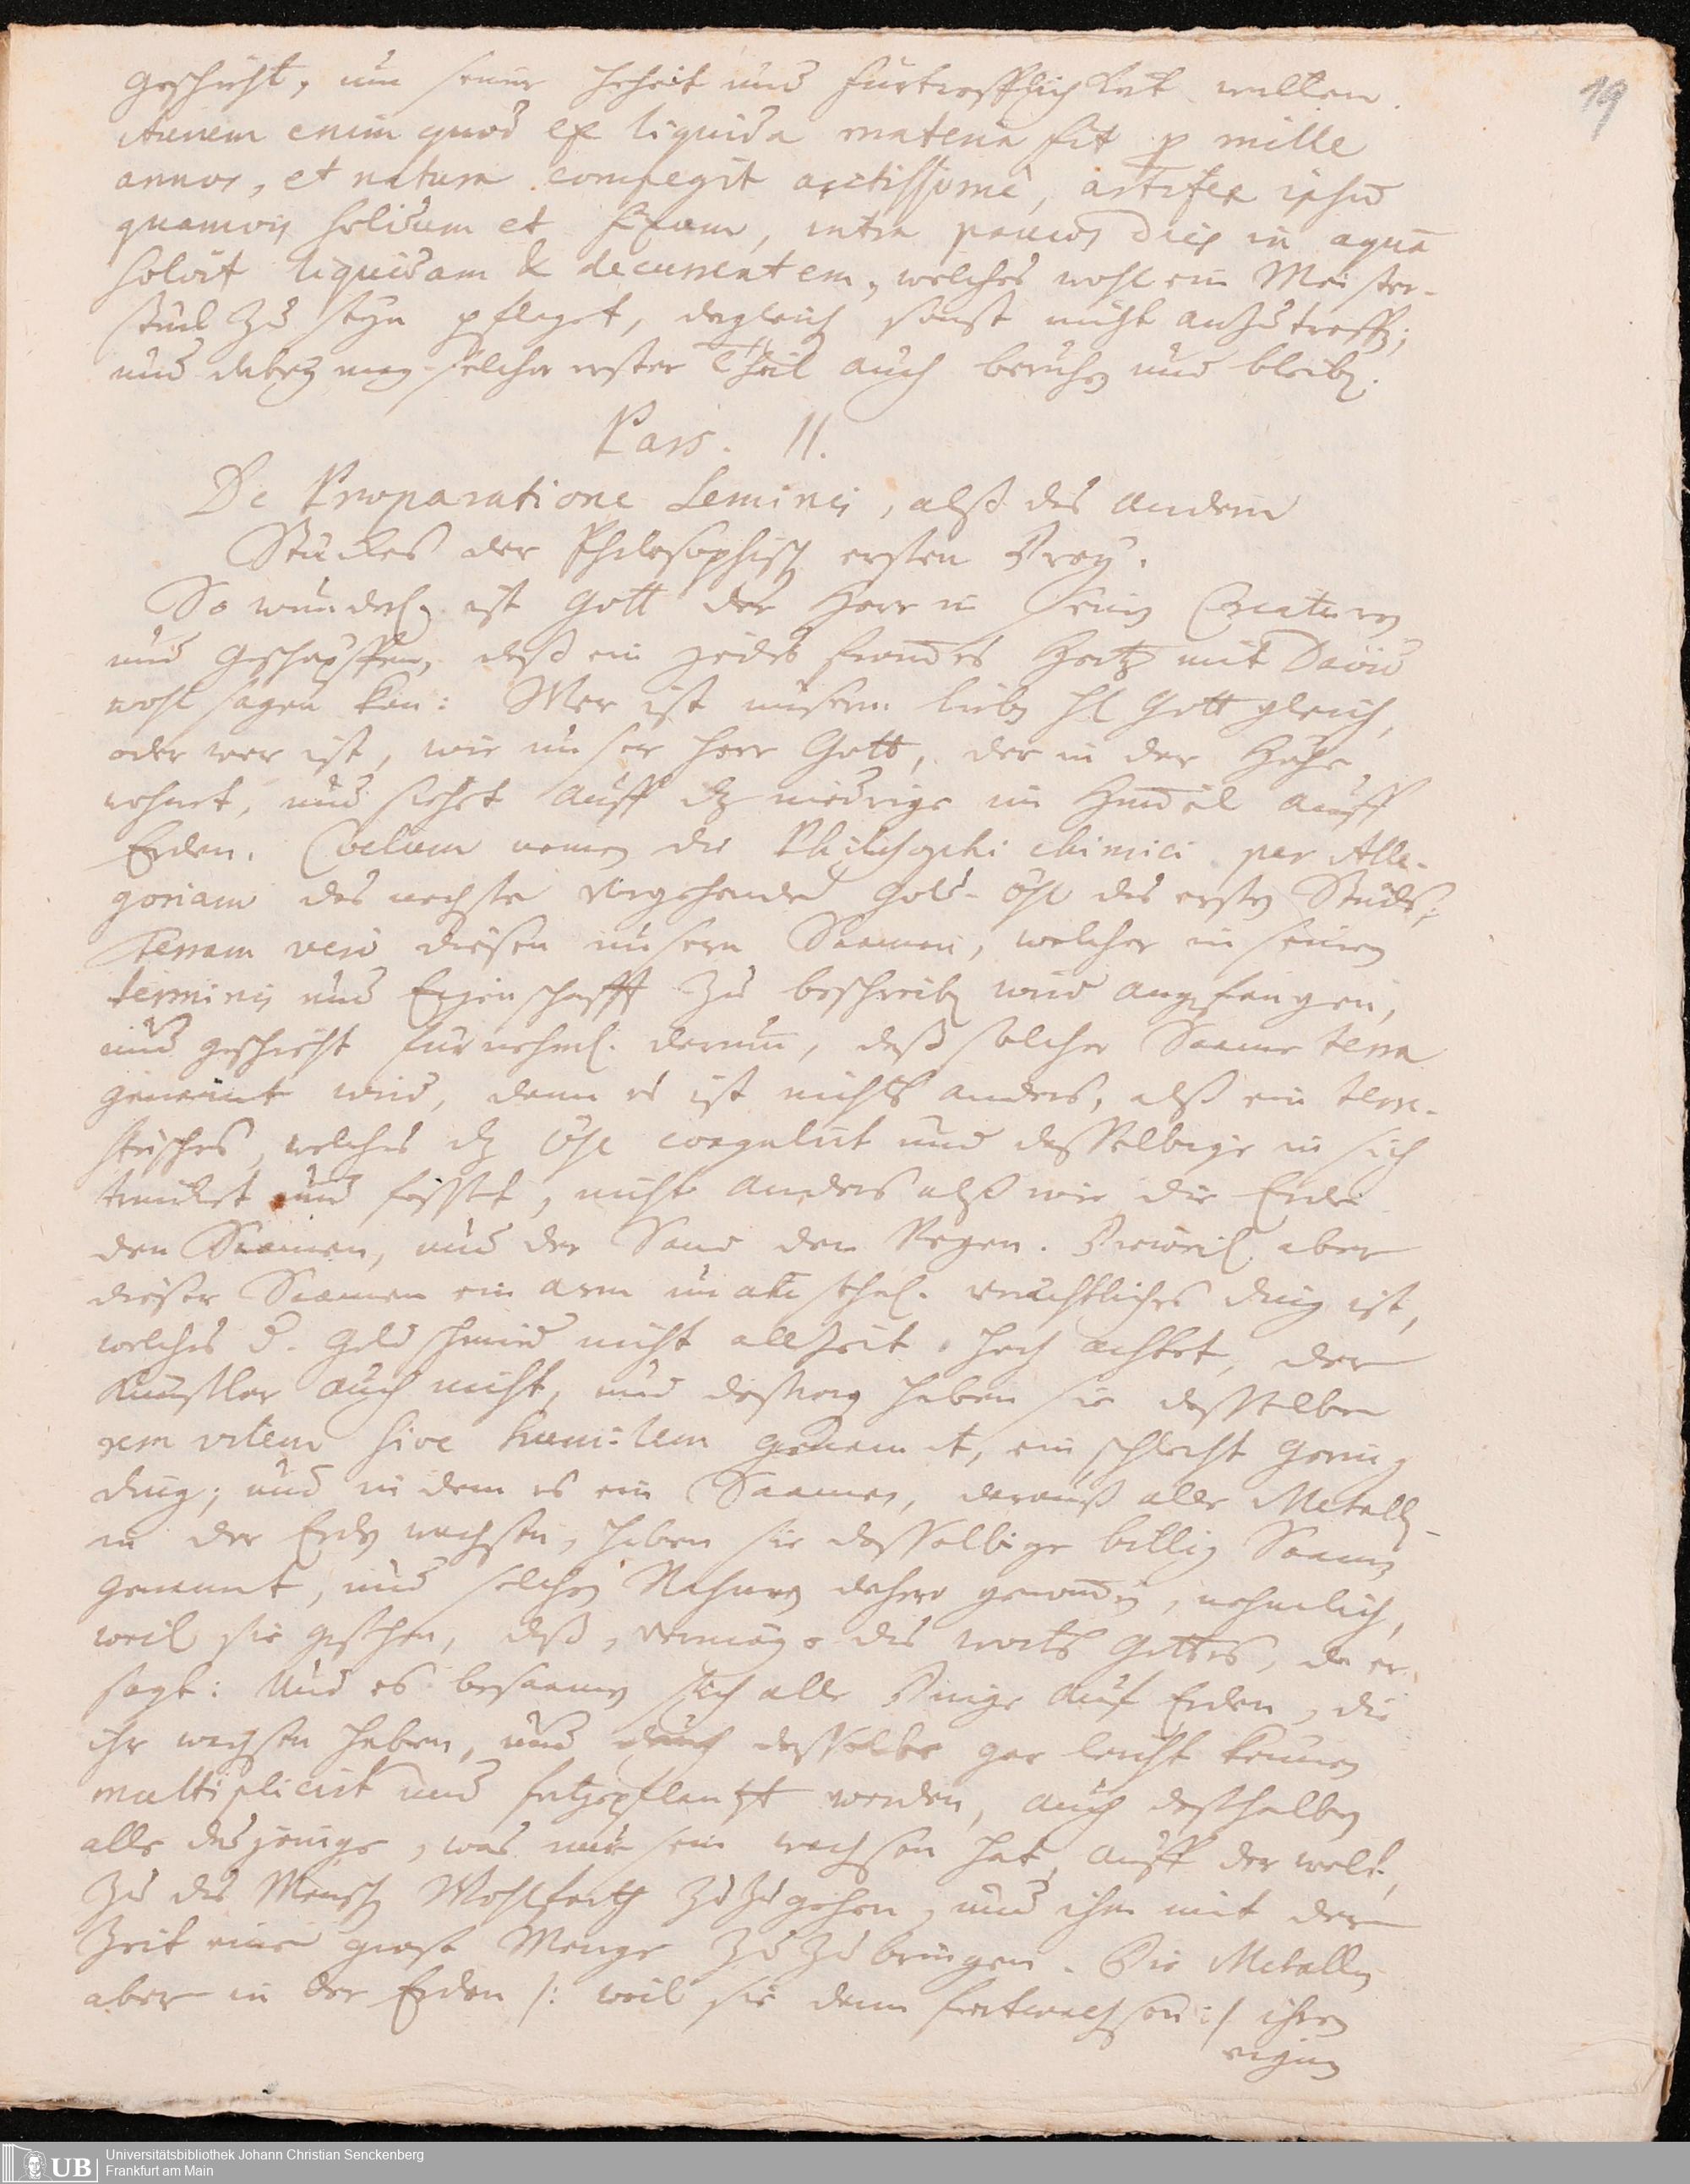 19
geschicht, um seiner Hoheit und Fürtrefflichkeit willen.
Aurum enim quod ex liquida materia fit p mille
annos, et natura compegit arctissime, artifex ipsu
quamvis solidum et fixum, intra paucos dies in aquā
solvit liquidam & decurrentem, welches wohl ein Meister-
stück zu seyn pfleget, dergleich sonst nicht anzutreffen;
und dabey mag solcher erster Theil auch beruhen und bleiben.
Pars. II.
De Præparatione Seminis, alß des andern
Stückes der Philosophisch ersten Drey.
So wunderl. ist Gott der Herr in seinen Creaturen
und Geschöpffen, daß ein jedes frommes Hertz mit David
wohl sagen kan: Wer ist unserm lieben H Gott gleich,
oder wer ist, wie unser Herr Gott, der in der Höhe
wohnet, und siehet auff dz niedrige im Himmel auff
Erden. Coelum nennen die Philosophi chimici per Alle-
goriam das nechste vorgehende Gold-öhl des ersten Stücks;
Terram vero diesen unsern Saamen, welcher in seinen
terminis und Eigenschafft zu beschreiben wird angefangen,
und geschicht fürnehml. darum, daß solcher Saame terra
genennt wird, denn es ist nichts anders, alß ein terre-
strisches, welches dz Öhl coagulirt und dasselbige in sich
trincket und fasset, nicht anders alß wie die Erde
den Saamen, und der Sand den Regen. Dieweil aber
dieser Saamen ein arm verächtliches Ding ist,
welches d. Goldschmied nicht allzeit hoch achtet, der
Künstler auch nicht, und deßwegen haben sie dasselbe
rem vilem sive humilem genannt, ein schlecht gering
Ding; und in dem es ein Saamen, darauß alle Metallen
in der Erden wachsen, haben sie dasselbige billig Saamen
genannt, und solchen Nahmen dahero genommen, nehmlich,
weil sie gesehen, daß, vermöge des Worts Gottes, da er
sagt: Und es besaamen sich alle Dinge auf Erden, die
ihr wachsen haben, und durch dasselbe gar leicht können
multiplicirt und fortgepflantzt werden, auch deßhalben
alle dasjenige, was nur sein wachsen hat, auff der welt,
zu des Menschen Wohlfarth zuzugehen, und ihm mit der
Zeit eine große Menge zuzubringen. Die Metallen
aber in der Erden /: weil sie denn fortwachsen :/ ihren
eigenen
UB Universitätsbibliothek Johann Christian Senckenberg
Frankfurt am Main